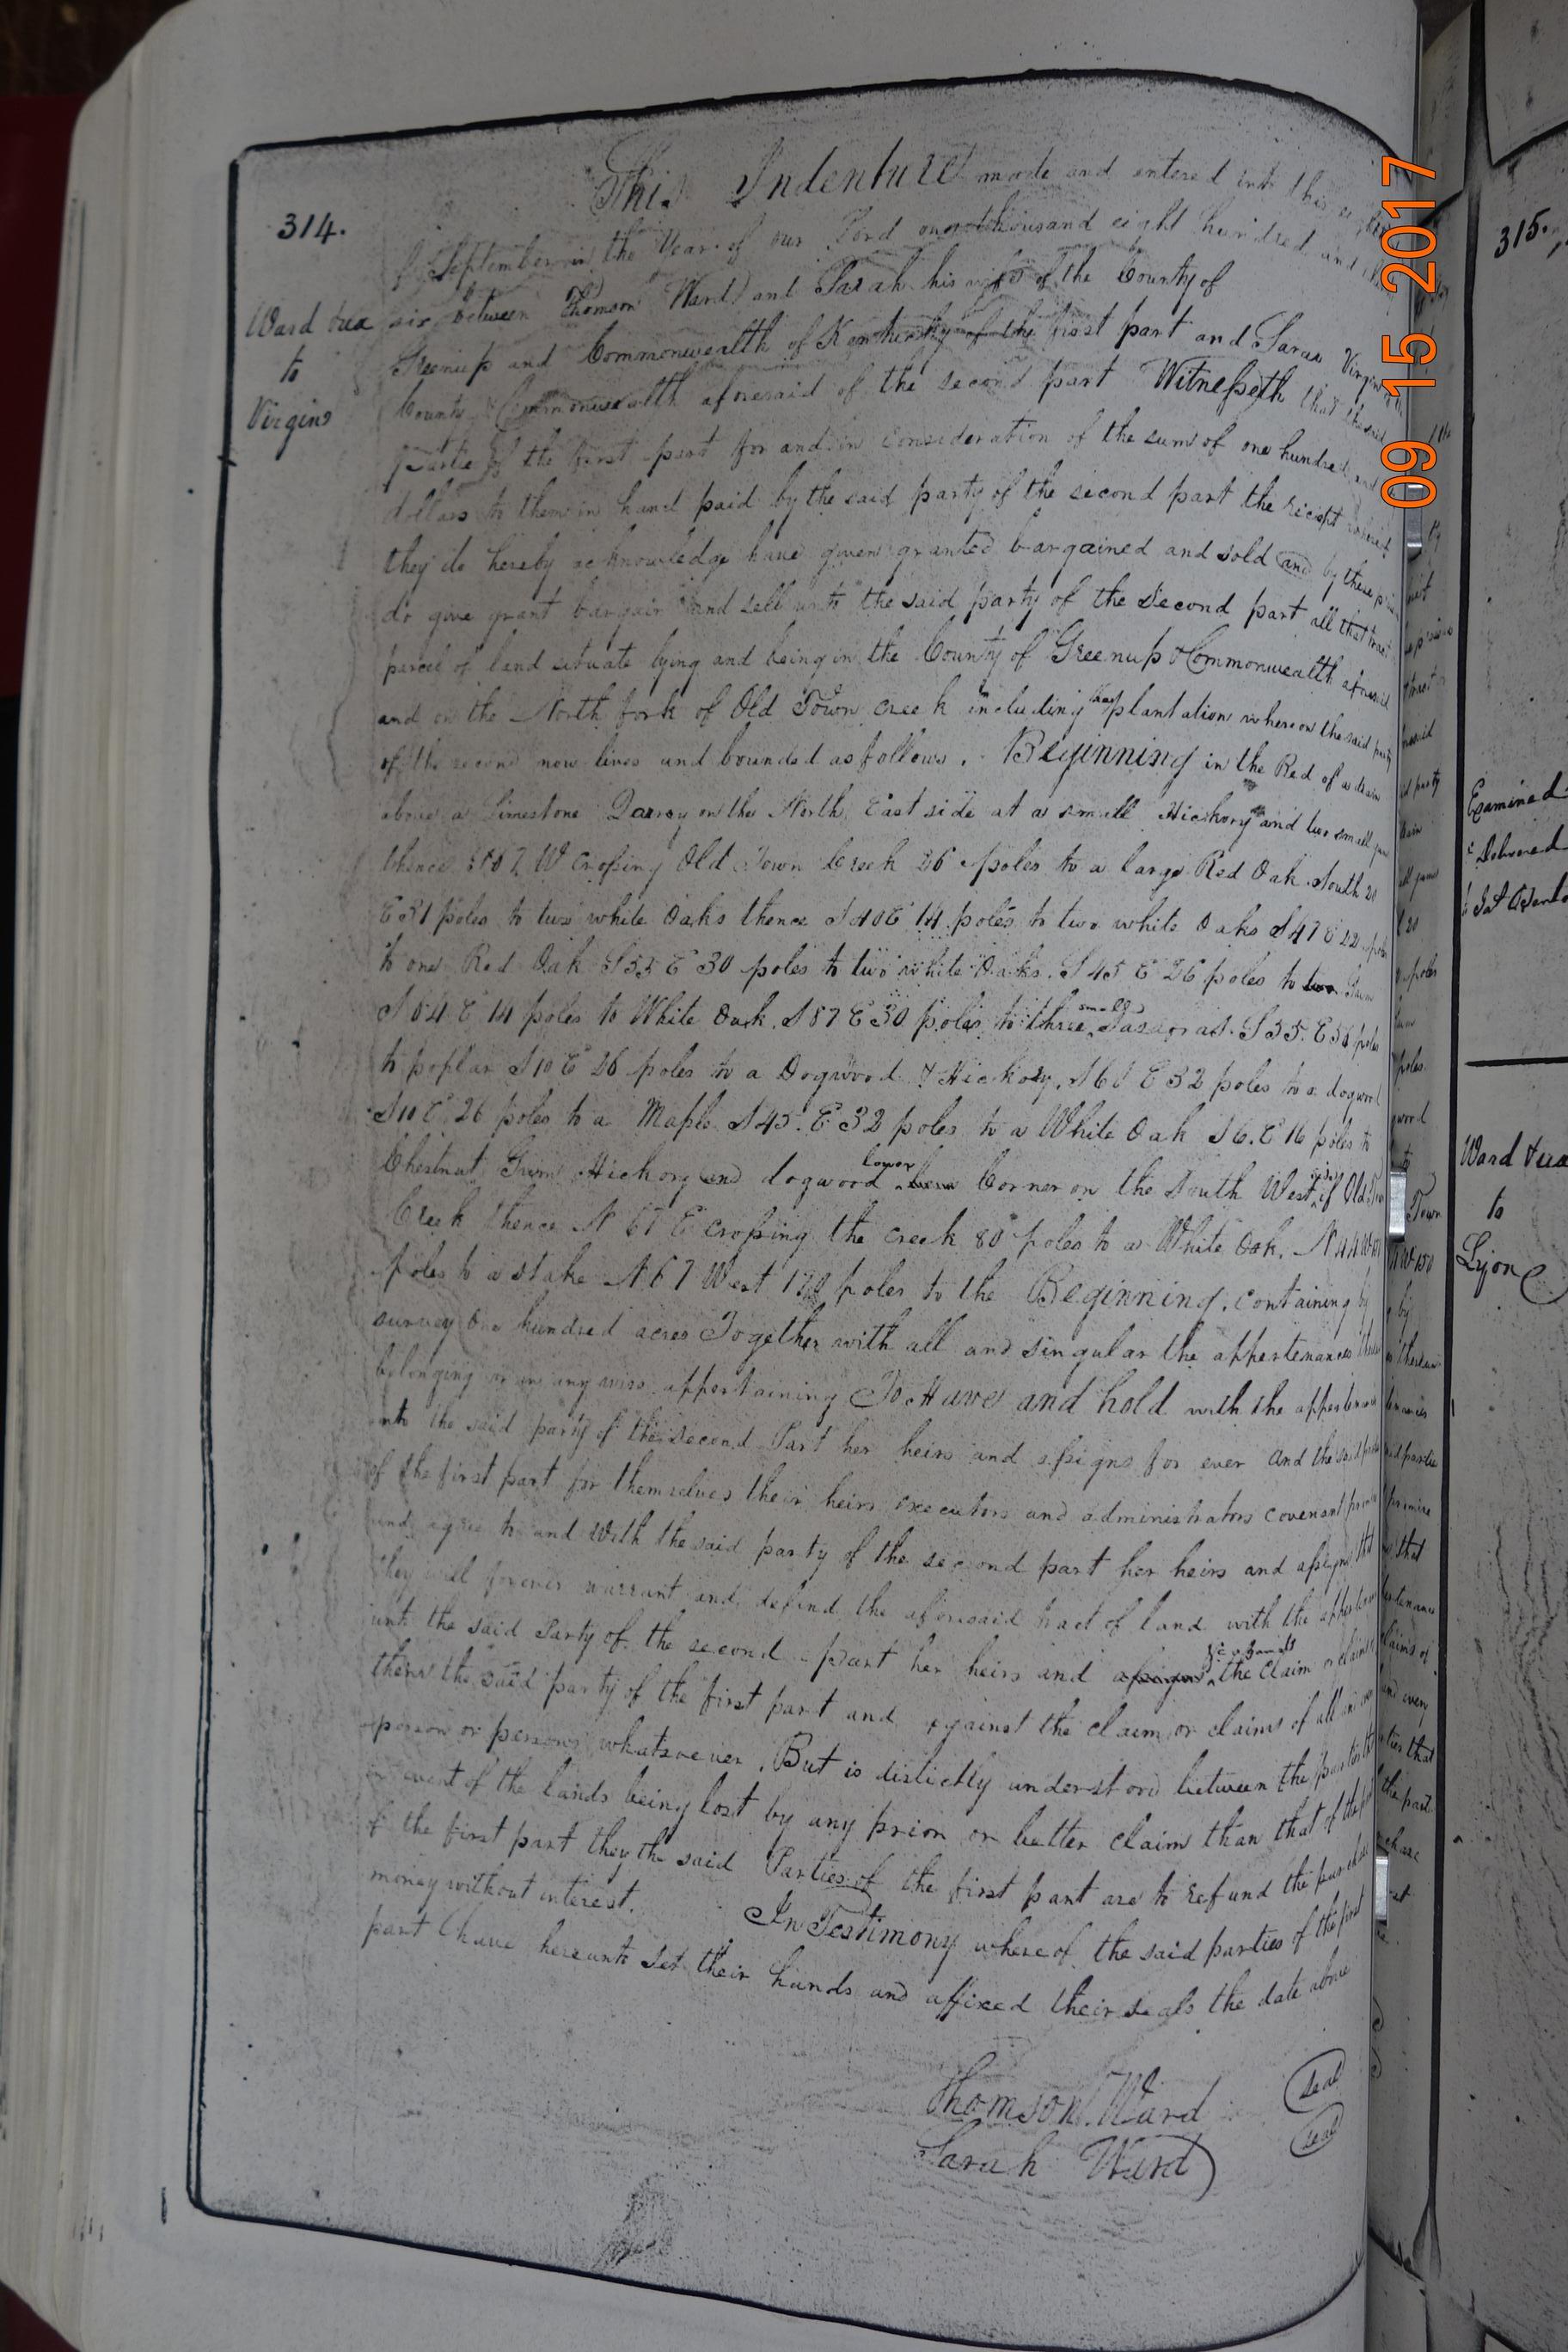 314.
This Indenture made and entered into this
of September in the Year of our Lord one thousand eight hundred and
Ward & ux
to
Virgins
six between Thomson Ward and Sarah his wife of the County of
Greenup and Commonwealth of Kentucky of the first part and Sarah Virgin
County & Commonwealth aforesaid of the second part Witnesseth that the said
parties of the first part for and in Consideration of the sum of one hundred and
dollars to them in hand paid by the said party of the second part the receipt
they do hereby acknowledge have given granted bargained and sold and by these
do give grant bargain and sell unto the said party of the second part all that tract
parcel of land situate lying and being in the County of Greenup & Commonwealth aforesaid
and on the North fork of Old Town creek including the plantation whereon the said party
of the second now lives and bounded as follows. Beginning in the Red of a drain
above a Limestone Quarry on the North East side at a small Hickory and two small
thence S 67 W Crossing Old Town Creek 26 poles to a large Red Oak South 20
E 31 poles to two white Oaks thence S 40 E 14 poles to two white Oaks S 47 E 22 poles
to one Red Oak S 55 E 30 poles to two white Oaks. S 45 E 26 poles to two Gum
S 64 E 14 poles to White Oak. S 87 E 30 poles to three small Sasafras. S 55. E 56 poles
to poplar S 10 E 26 poles to a Dogwood & Hickory. S 61 E 32 poles to a dogwood
S 10 E 26 poles to a Maple S 45. E 32 poles to a White Oak S 6. E 16 poles to
Chestnut Gum Hickory and dogwood lower Corner on the South West side of Old Town
Creek thence N 67 E crossing the creek 80 poles to a White Oak. N 44 W 150
poles to a stake N 67 West 178 poles to the Beginning. containing by
survey One hundred acres Together with all and singular the appertenances
belonging or in any wise appertaining To Have and hold with the appertenances
unto the said party of the second Part her heirs and assigns for ever And the said parties
of the first part for themselves their heirs executors and administrators covenant promise
and agree to and with the said party of the second part her heirs and assigns that
they will forever warrant and defend the aforesaid tract of land with the appertenances
unto the said Party of the second part her heirs and assigns the Claim or claims of
them the said party of the first part and against the claim or claims of all and every
person or persons whatsoever. But is distictly understood between the parties that
in event of the lands being lost by any prior or better claim than that of the part
of the first part they the said Parties of the first part are to refund the purchase
money without interest. In Testimony whereof the said parties of the first
part have hereunto set their hands and affixed their seals the date above
Thomson Ward seal
Sarah Ward seal
315.
Examined
& Delivered
Ward & ux
to
Lyon
09 15 2017